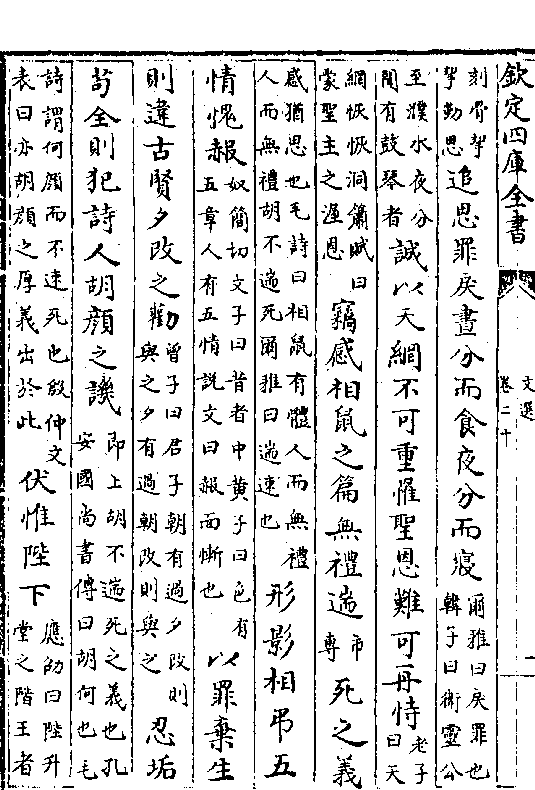 欽定四庫全書
文選
卷二十
刻骨挈
挈勤思
追思罪戾晝分而食夜分而寢
爾雅曰戾罪也
韓子曰衛靈公
至濮水夜分
聞有鼓琴者
誠以天網不可重罹聖恩難可再恃
老子
曰天
網恢恢洞簫賦曰
蒙聖主之渥恩
竊感相鼠之篇無禮遄
市
專
死之義
感猶思也毛詩曰相鼠有體人而無禮
人而無禮胡不遄死爾雅曰遄速也
形影相弔五
情愧赧
奴簡切文子曰昔者中黄子曰色有
五章人有五情説文曰赧面慚也
以罪棄生
則違古賢夕改之勸
曾子曰君子朝有過夕改則
與之夕有過朝改則與之
忍垢
苟全則犯詩人胡顔之譏
即上胡不遄死之義也孔
安國尚書傳曰胡何也毛
詩謂何顔而不速死也殷仲文
表曰亦胡顔之厚義出於此
伏惟陛下
應劭曰陛升
堂之階王者